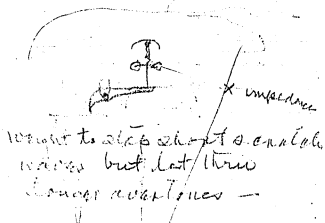 X impedance
weight to stop short scratch
waves but let thru
longer overtones —